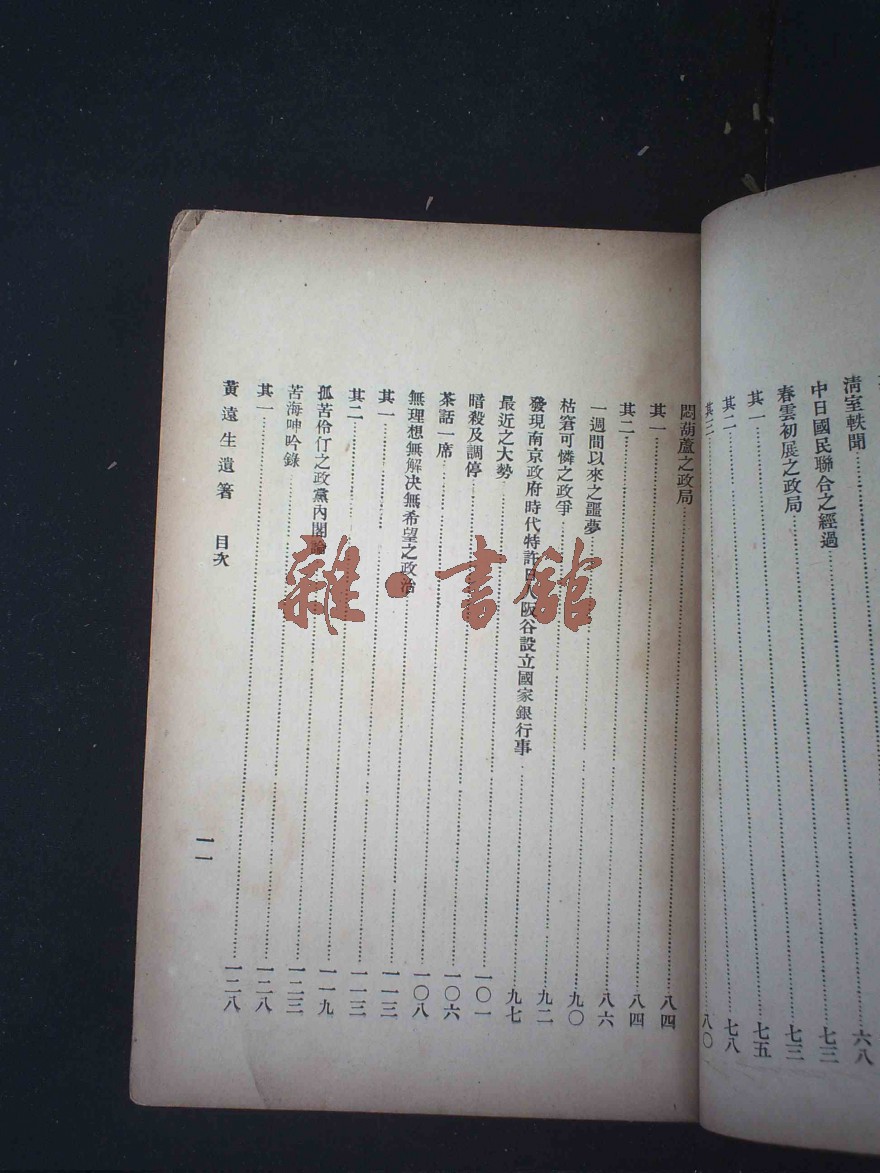 清室軼聞……六八
中日國民聯合之經過……七三
春雲初展之政局……七三
其一……七五
其二……七八
其三……八〇
悶葫蘆之政局……八四
其一……八四
其二……八六
一週間以來之噩夢……九〇
枯窘可憐之政爭……九二
發現南京政府時代特許日人阪谷設立國家銀行事……九七
最近之大勢……一〇一
暗殺及調停……一〇六
茶話一席……一〇八
無理想無解決無希望之政治……一一三
其一……一一三
其二……一一九
孤苦伶仃之政黨內閣論……一二三
苦海呻吟錄……一二八
其一……一二八
黃遠生遺著 目次
一一
雜·書館